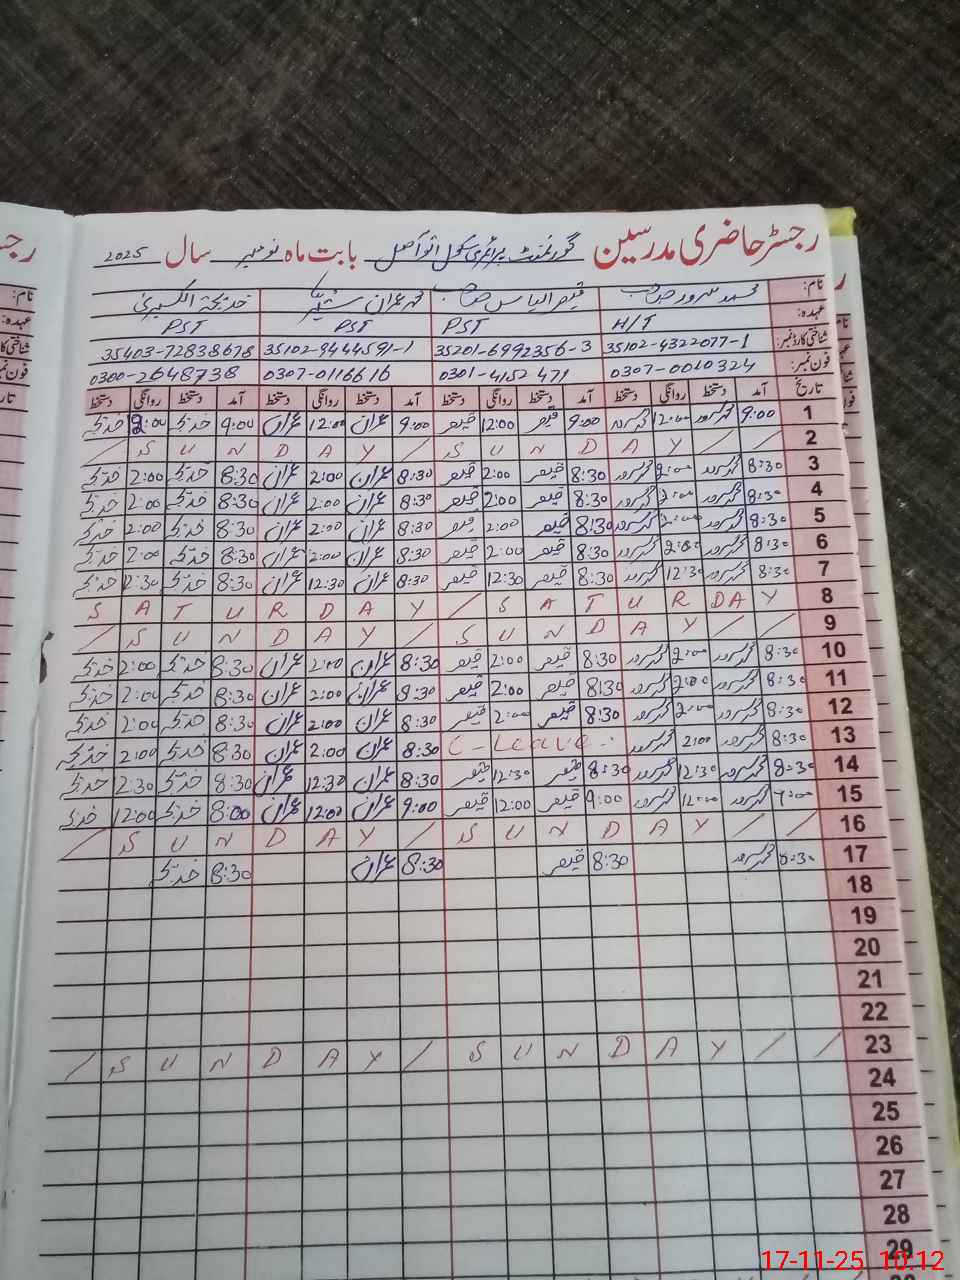 رجسٹر حاضری مدرسین گورنمنٹ پرائمری سکول بابت ماہ نومبر سال 2025
نام: محمد سرور صاحب قیصر الیاس صاحب محمد عمران خدیجۃ الکبریٰ
عہدہ: H/T PST PST PST
شناختی کارڈ نمبر: 35102-4322077-1 35201-6992356-3 35102-9444591-1 35403-72838678
فون نمبر: 0307-0010324 0301-4152471 0307-0116616 0300-2648738
تاریخ آمد دستخط روانگی دستخط آمد دستخط روانگی دستخط آمد دستخط روانگی دستخط آمد دستخط روانگی دستخط
1 9:00 محمد سرور 12:00 محمد سرور 9:00 قیصر 12:00 قیصر 9:00 عمران 12:00 عمران 9:00 خدیجہ 2:00 خدیجہ
2 / S U N D A Y / S U N D A Y / /
3 8:30 محمد سرور 2:00 محمد سرور 8:30 قیصر 2:00 قیصر 8:30 عمران 2:00 عمران 8:30 خدیجہ 2:00 خدیجہ
4 8:30 محمد سرور 2:00 محمد سرور 8:30 قیصر 2:00 قیصر 8:30 عمران 2:00 عمران 8:30 خدیجہ 2:00 خدیجہ
5 8:30 محمد سرور 2:00 محمد سرور 8:30 قیصر 2:00 قیصر 8:30 عمران 2:00 عمران 8:30 خدیجہ 2:00 خدیجہ
6 8:30 محمد سرور 2:00 محمد سرور 8:30 قیصر 2:00 قیصر 8:30 عمران 2:00 عمران 8:30 خدیجہ 2:00 خدیجہ
7 8:30 محمد سرور 12:30 محمد سرور 8:30 قیصر 12:30 قیصر 8:30 عمران 12:30 عمران 8:30 خدیجہ 12:30 خدیجہ
8 S A T U R D A Y / S A T U R D A Y
9 / S U N D A Y / S U N D A Y / /
10 8:30 محمد سرور 2:00 محمد سرور 8:30 قیصر 2:00 قیصر 8:30 عمران 2:00 عمران 8:30 خدیجہ 2:00 خدیجہ
11 8:30 محمد سرور 2:00 محمد سرور 8:30 قیصر 2:00 قیصر 8:30 عمران 2:00 عمران 8:30 خدیجہ 2:00 خدیجہ
12 8:30 محمد سرور 2:00 محمد سرور 8:30 قیصر 2:00 قیصر 8:30 عمران 2:00 عمران 8:30 خدیجہ 2:00 خدیجہ
13 8:30 محمد سرور 2:00 محمد سرور C-Leave 8:30 عمران 2:00 عمران 8:30 خدیجہ 2:00 خدیجہ
14 8:30 محمد سرور 12:30 محمد سرور 8:30 قیصر 12:30 قیصر 8:30 عمران 12:30 عمران 8:30 خدیجہ 2:30 خدیجہ
15 9:00 محمد سرور 12:00 محمد سرور 9:00 قیصر 12:00 قیصر 9:00 عمران 12:00 عمران 8:00 خدیجہ 12:00 خدیجہ
16 / S U N D A Y / S U N D A Y / /
17 8:30 محمد سرور 8:30 قیصر 8:30 عمران 8:30 خدیجہ
18
19
20
21
22
23 / S U N D A Y / S U N D A Y / /
24
25
26
27
28
29
17-11-25 10:12